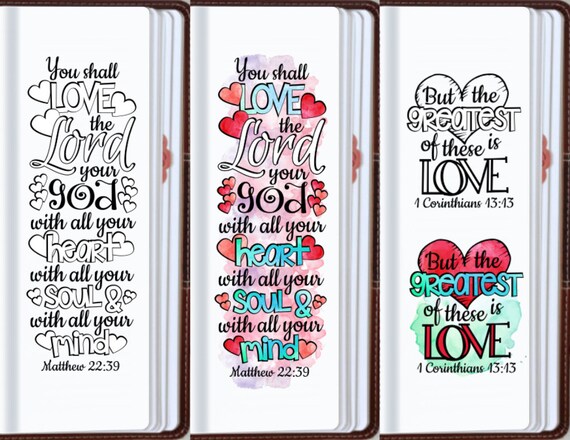 You shall
LOVE
the
Lord
your
god
with all your
heart
with all your
SOUL &
with all your
mind
Matthew 22:39
You shall
LOVE
the
Lord
your
god
with all your
heart
with all your
SOUL &
with all your
mind
Matthew 22:39
But the
GREATEST
of these is
LOVE
1 Corinthians 13:13
But the
GREATEST
of these is
LOVE
1 Corinthians 13:13